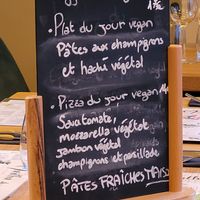 • Plat du jour vegan
Pâtes aux champignons
et haché végétal
• Pizza du jour vegan
Sauce tomate,
mozzarella végétal
jambon végétal
champignons et persillade
PÂTES FRAÎCHES MAISON